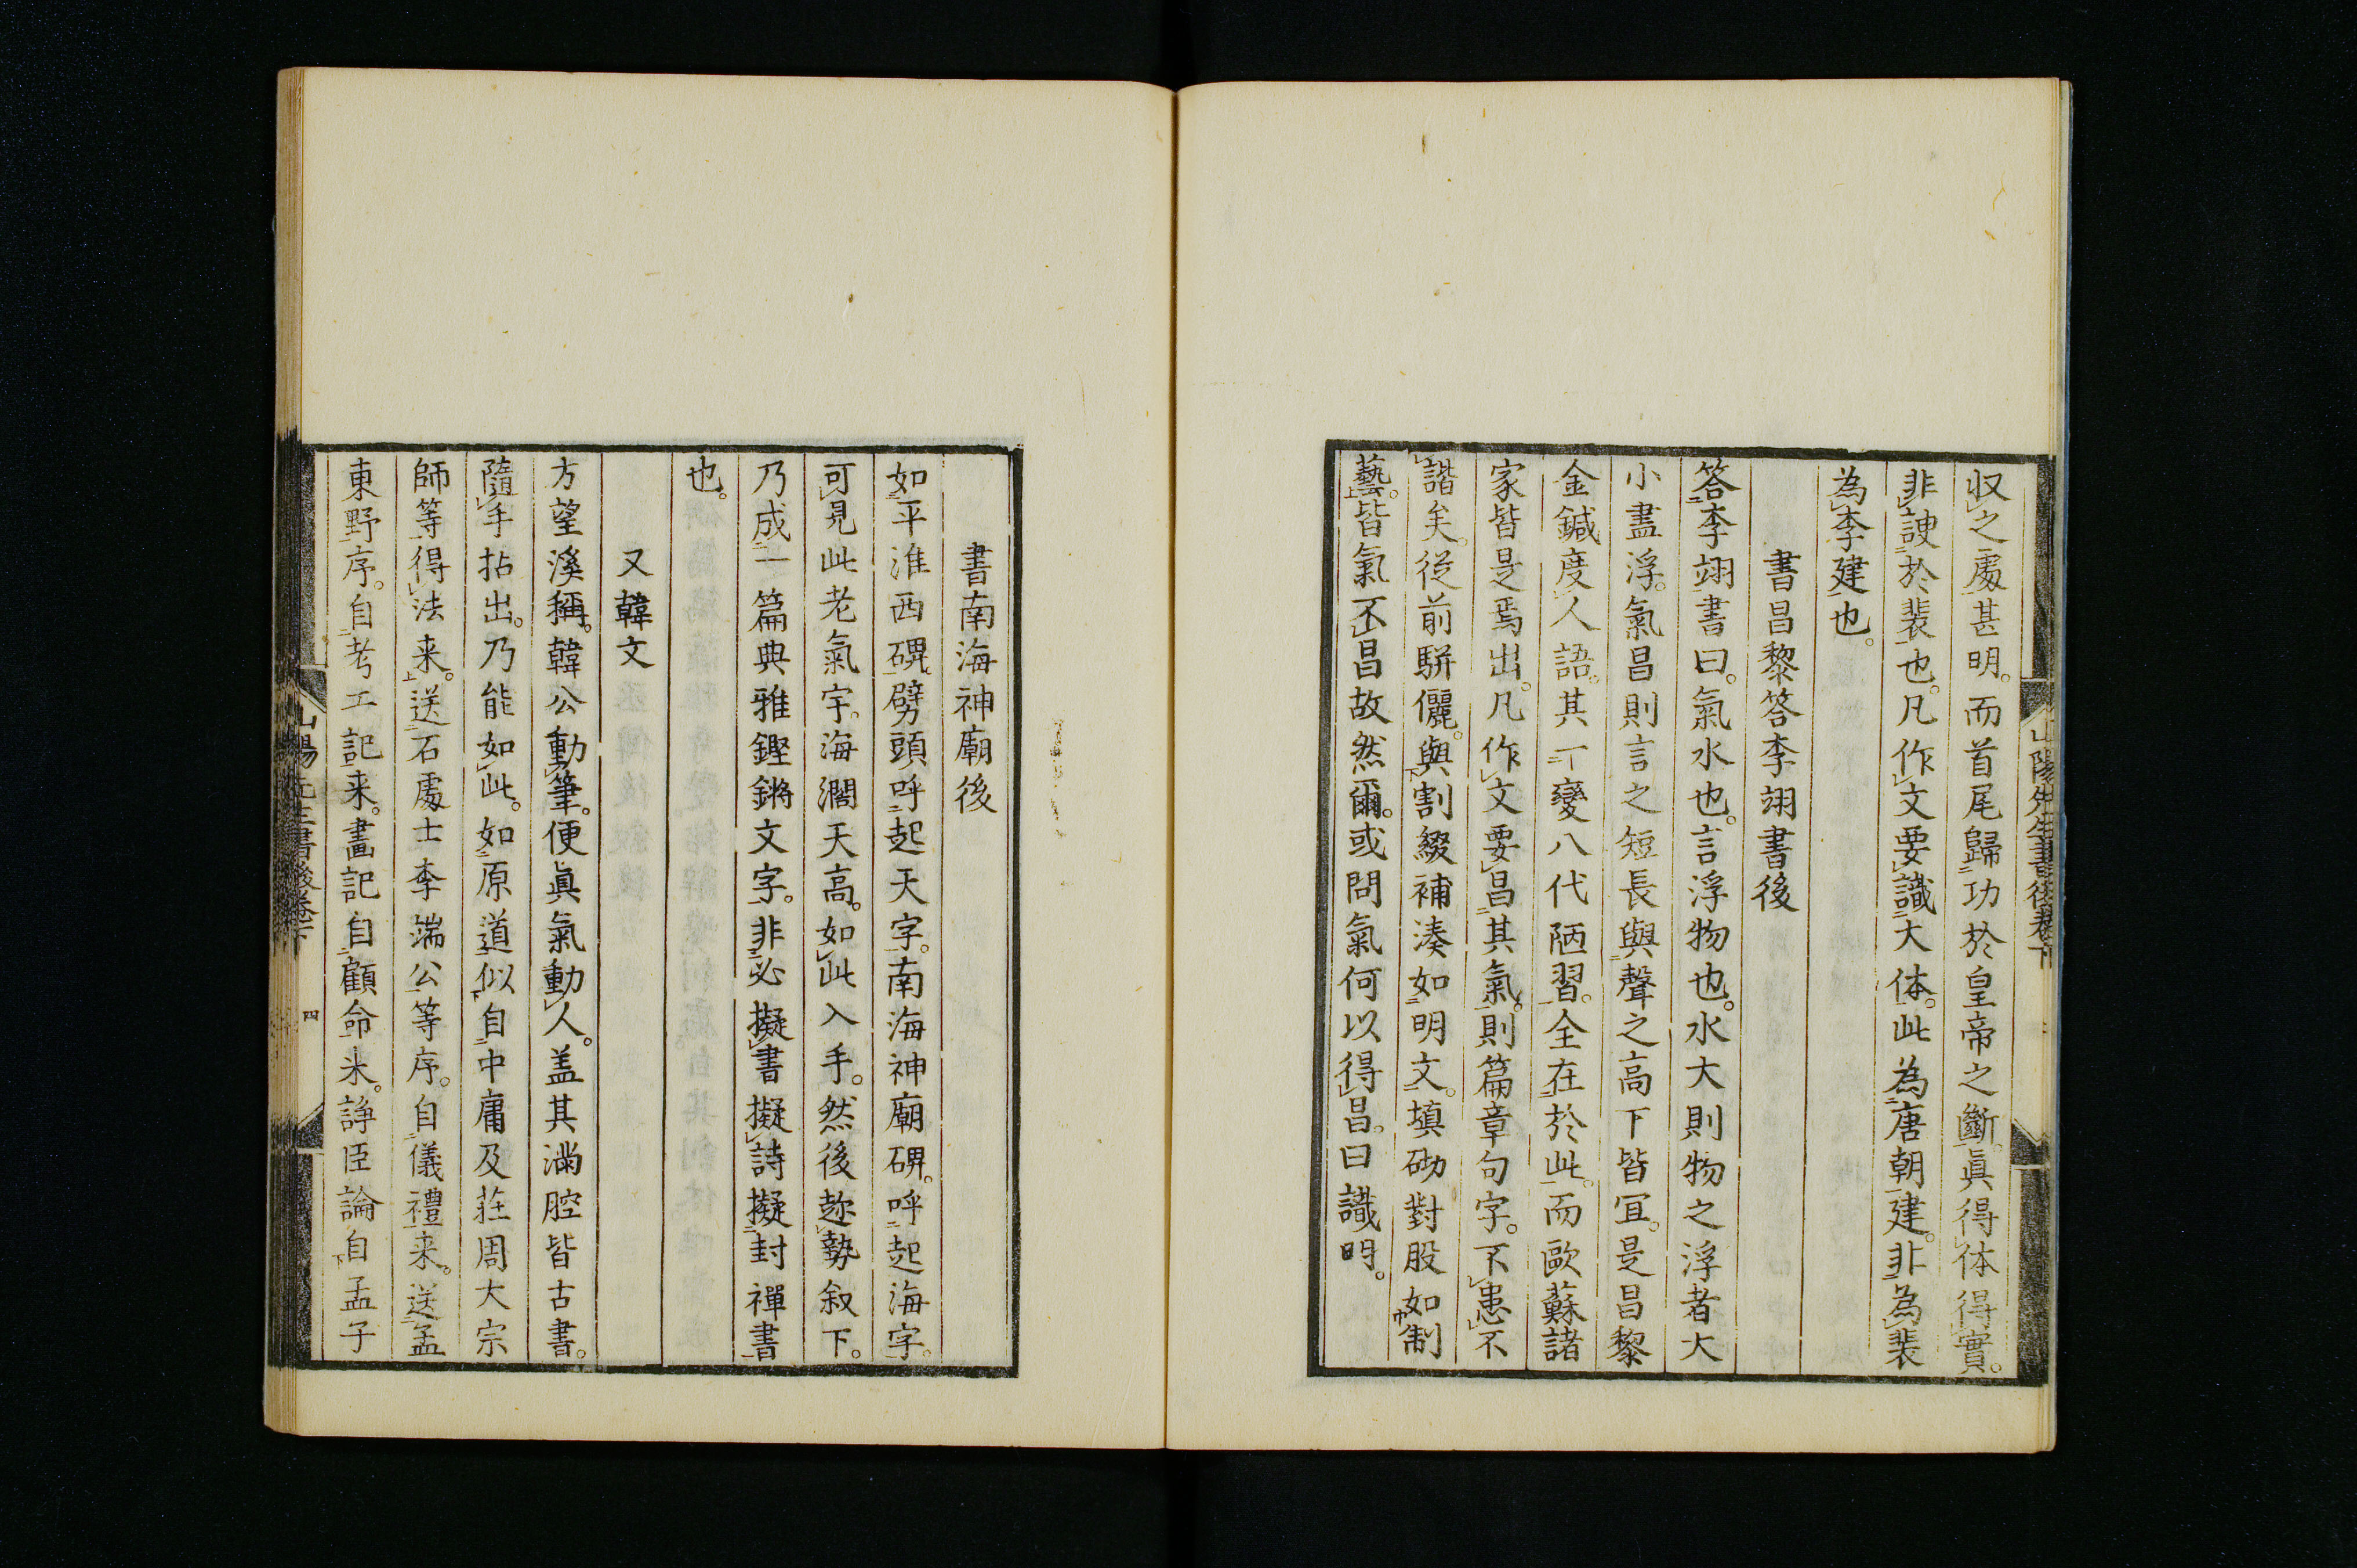 山陽先生書後卷下
収之處甚明。而首尾歸功於皇帝之斷。眞得体得實。
非諛於裴也。凡作文要識大体。此為唐朝建。非為裴
為李建也。
書昌黎答李翊書後
答李翊書曰。氣水也。言浮物也。水大則物之浮者大
小畫浮。氣昌則言之短長與聲之高下皆宜。是昌黎
金鍼度人語。其一變八代陋習。全在於此。而歐蘇諸
家皆是焉出。凡作文要昌其氣。則篇章句字。不患不
諧矣。從前駢儷。與割綴補湊如明文。填砌對股如制
藝。皆氣不昌故然爾。或問氣何以得昌。曰識明。
書南海神廟後
如平淮西碑。劈頭呼起天字。南海神廟碑。呼起海字。
可見此老氣宇。海濶天高。如此入手。然後趂勢叙下。
乃成一篇典雅鏗鏘文字。非必擬書擬詩擬封禪書
也。
又韓文
方望溪稱。韓公動筆。便眞氣動人。盖其滿腔皆古書。
隨手拈出。乃能如此。如原道似自中庸及莊周大宗
師等得法来。送石處士李端公等序。自儀禮来。送孟
東野序。自考工記来。畫記自顧命来。諍臣論自孟子
山陽先生書後卷下
四